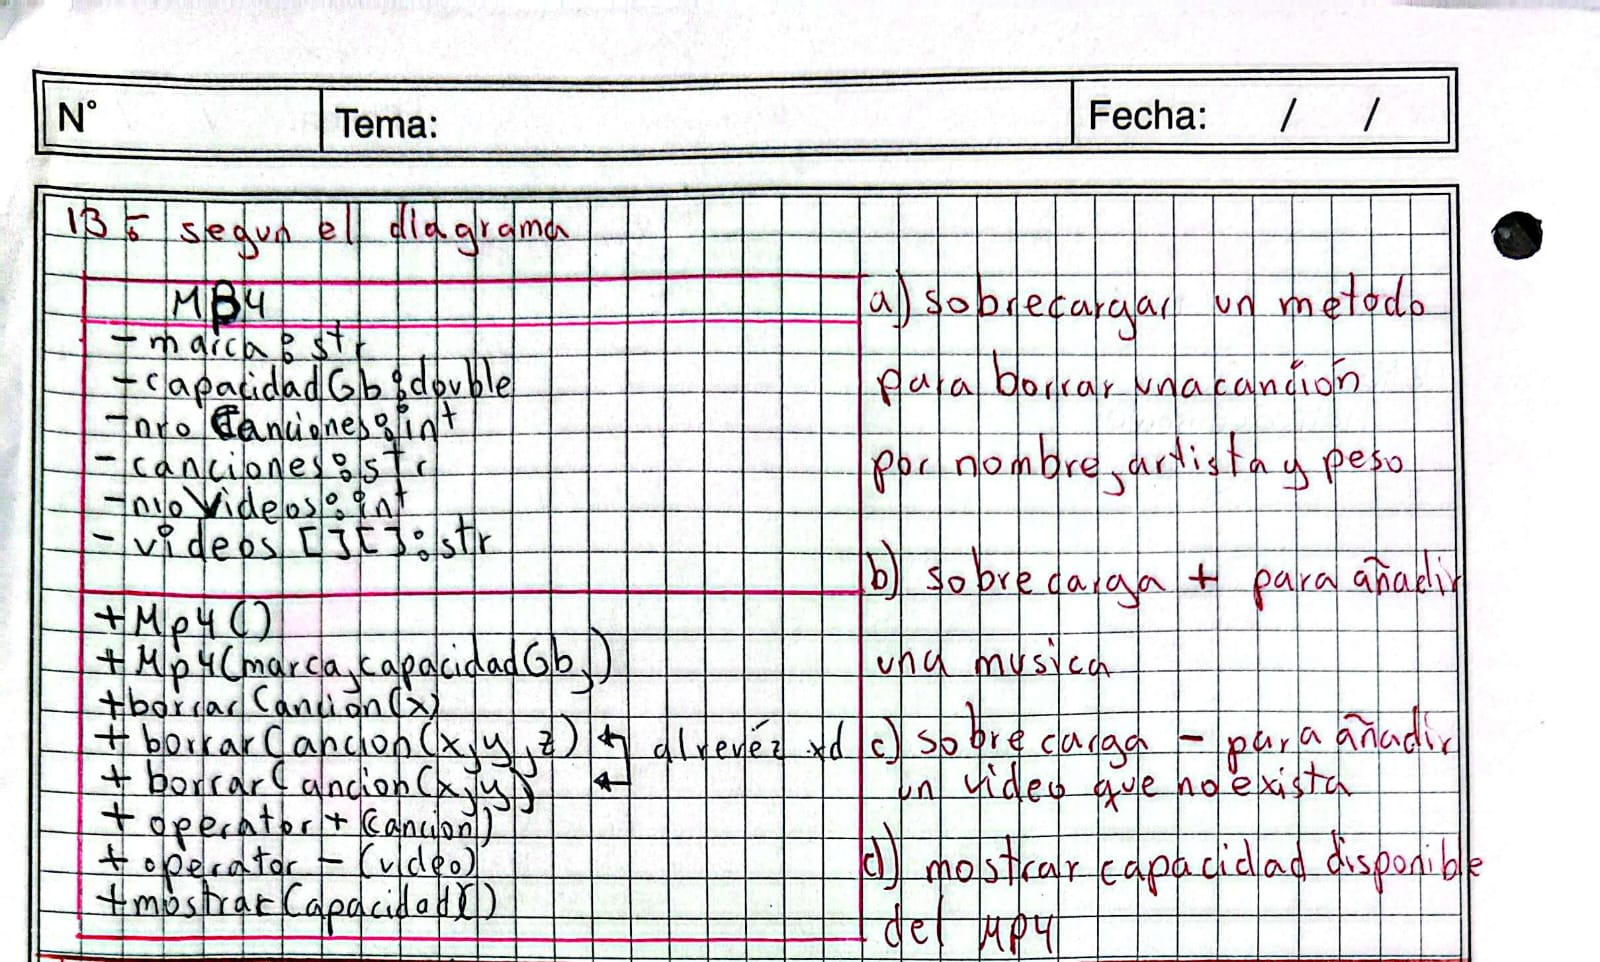 N° Tema: Fecha: / /
13: segun el diagrama
Mp4
- marca: str
- capacidadGb: double
- nro Canciones: int
- canciones: str
- nroVideos: int
- videos [][]: str
+ Mp4()
+ Mp4(marca, capacidadGb,)
+ borrarCancion(x)
+ borrarCancion(x,y,z) alrevéz xd
+ borrarCancion(x,y)
+ operator + (cancion)
+ operator - (video)
+ mostrarCapacidad()
a) sobrecargar un metodo
para borrar una canción
por nombre, artista y peso
b) sobrecarga + para añadir
una musica
c) sobrecarga - para añadir
un video que no exista
d) mostrar capacidad disponible
del MP4